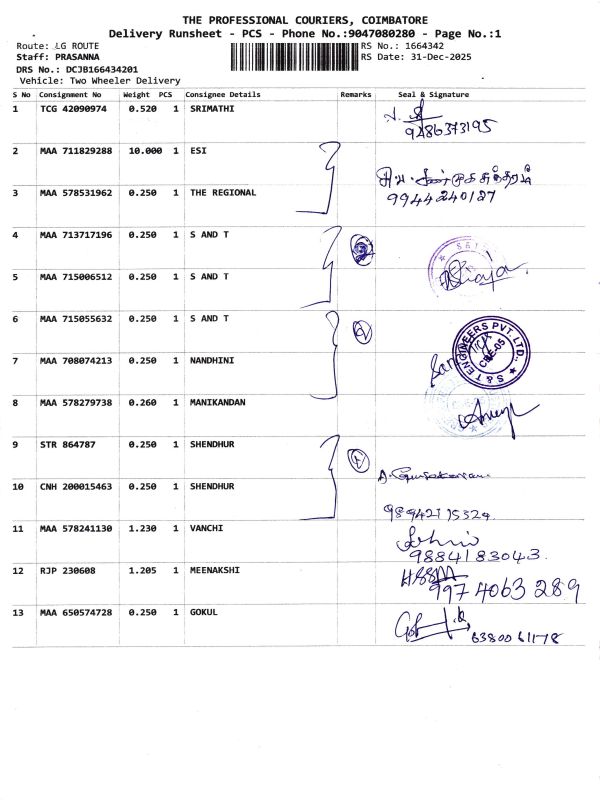 THE PROFESSIONAL COURIERS, COIMBATORE
Delivery Runsheet - PCS - Phone No.:9047080280 - Page No.:1
Route: LG ROUTE RS No.: 1664342
Staff: PRASANNA RS Date: 31-Dec-2025
DRS No.: DCJB166434201
Vehicle: Two Wheeler Delivery
S No Consignment No Weight PCS Consignee Details Remarks Seal & Signature
1 TCG 42090974 0.520 1 SRIMATHI
9486373195
2 MAA 711829288 10.000 1 ESI
3 MAA 578531962 0.250 1 THE REGIONAL
9944240127
4 MAA 713717196 0.250 1 S AND T
S & T
5 MAA 715006512 0.250 1 S AND T
6 MAA 715055632 0.250 1 S AND T
S & T ENGINEERS PVT. LTD.,
CBE-05
7 MAA 708074213 0.250 1 NANDHINI
8 MAA 578279738 0.260 1 MANIKANDAN
9 STR 864787 0.250 1 SHENDHUR
10 CNH 200015463 0.250 1 SHENDHUR
9894215324
11 MAA 578241130 1.230 1 VANCHI
9884183043
12 RJP 230608 1.205 1 MEENAKSHI
9974063289
13 MAA 650574728 0.250 1 GOKUL
6380061178